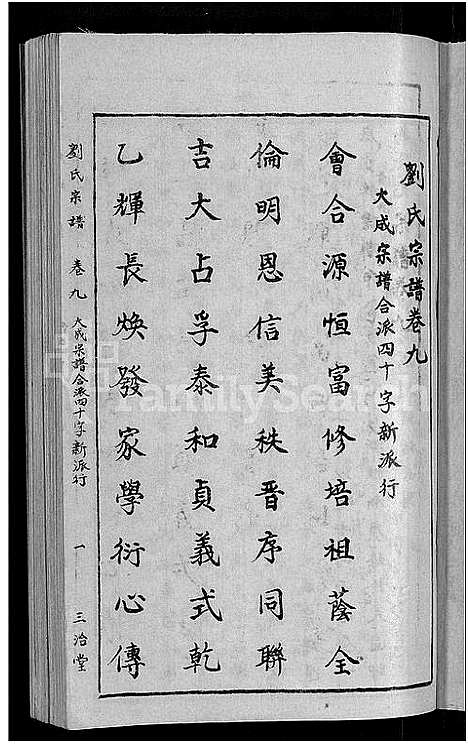 劉氏宗譜卷九
大成宗譜合派四十字新派行
會合源恒富修培祖蔭全
倫明恩信美秩晋序同聯
吉大占孚泰和貞義式乾
乙輝長焕發家學衍心傳
劉氏宗譜 卷九 大成宗譜合派四十字新派行 一 三治堂
FamilySearch